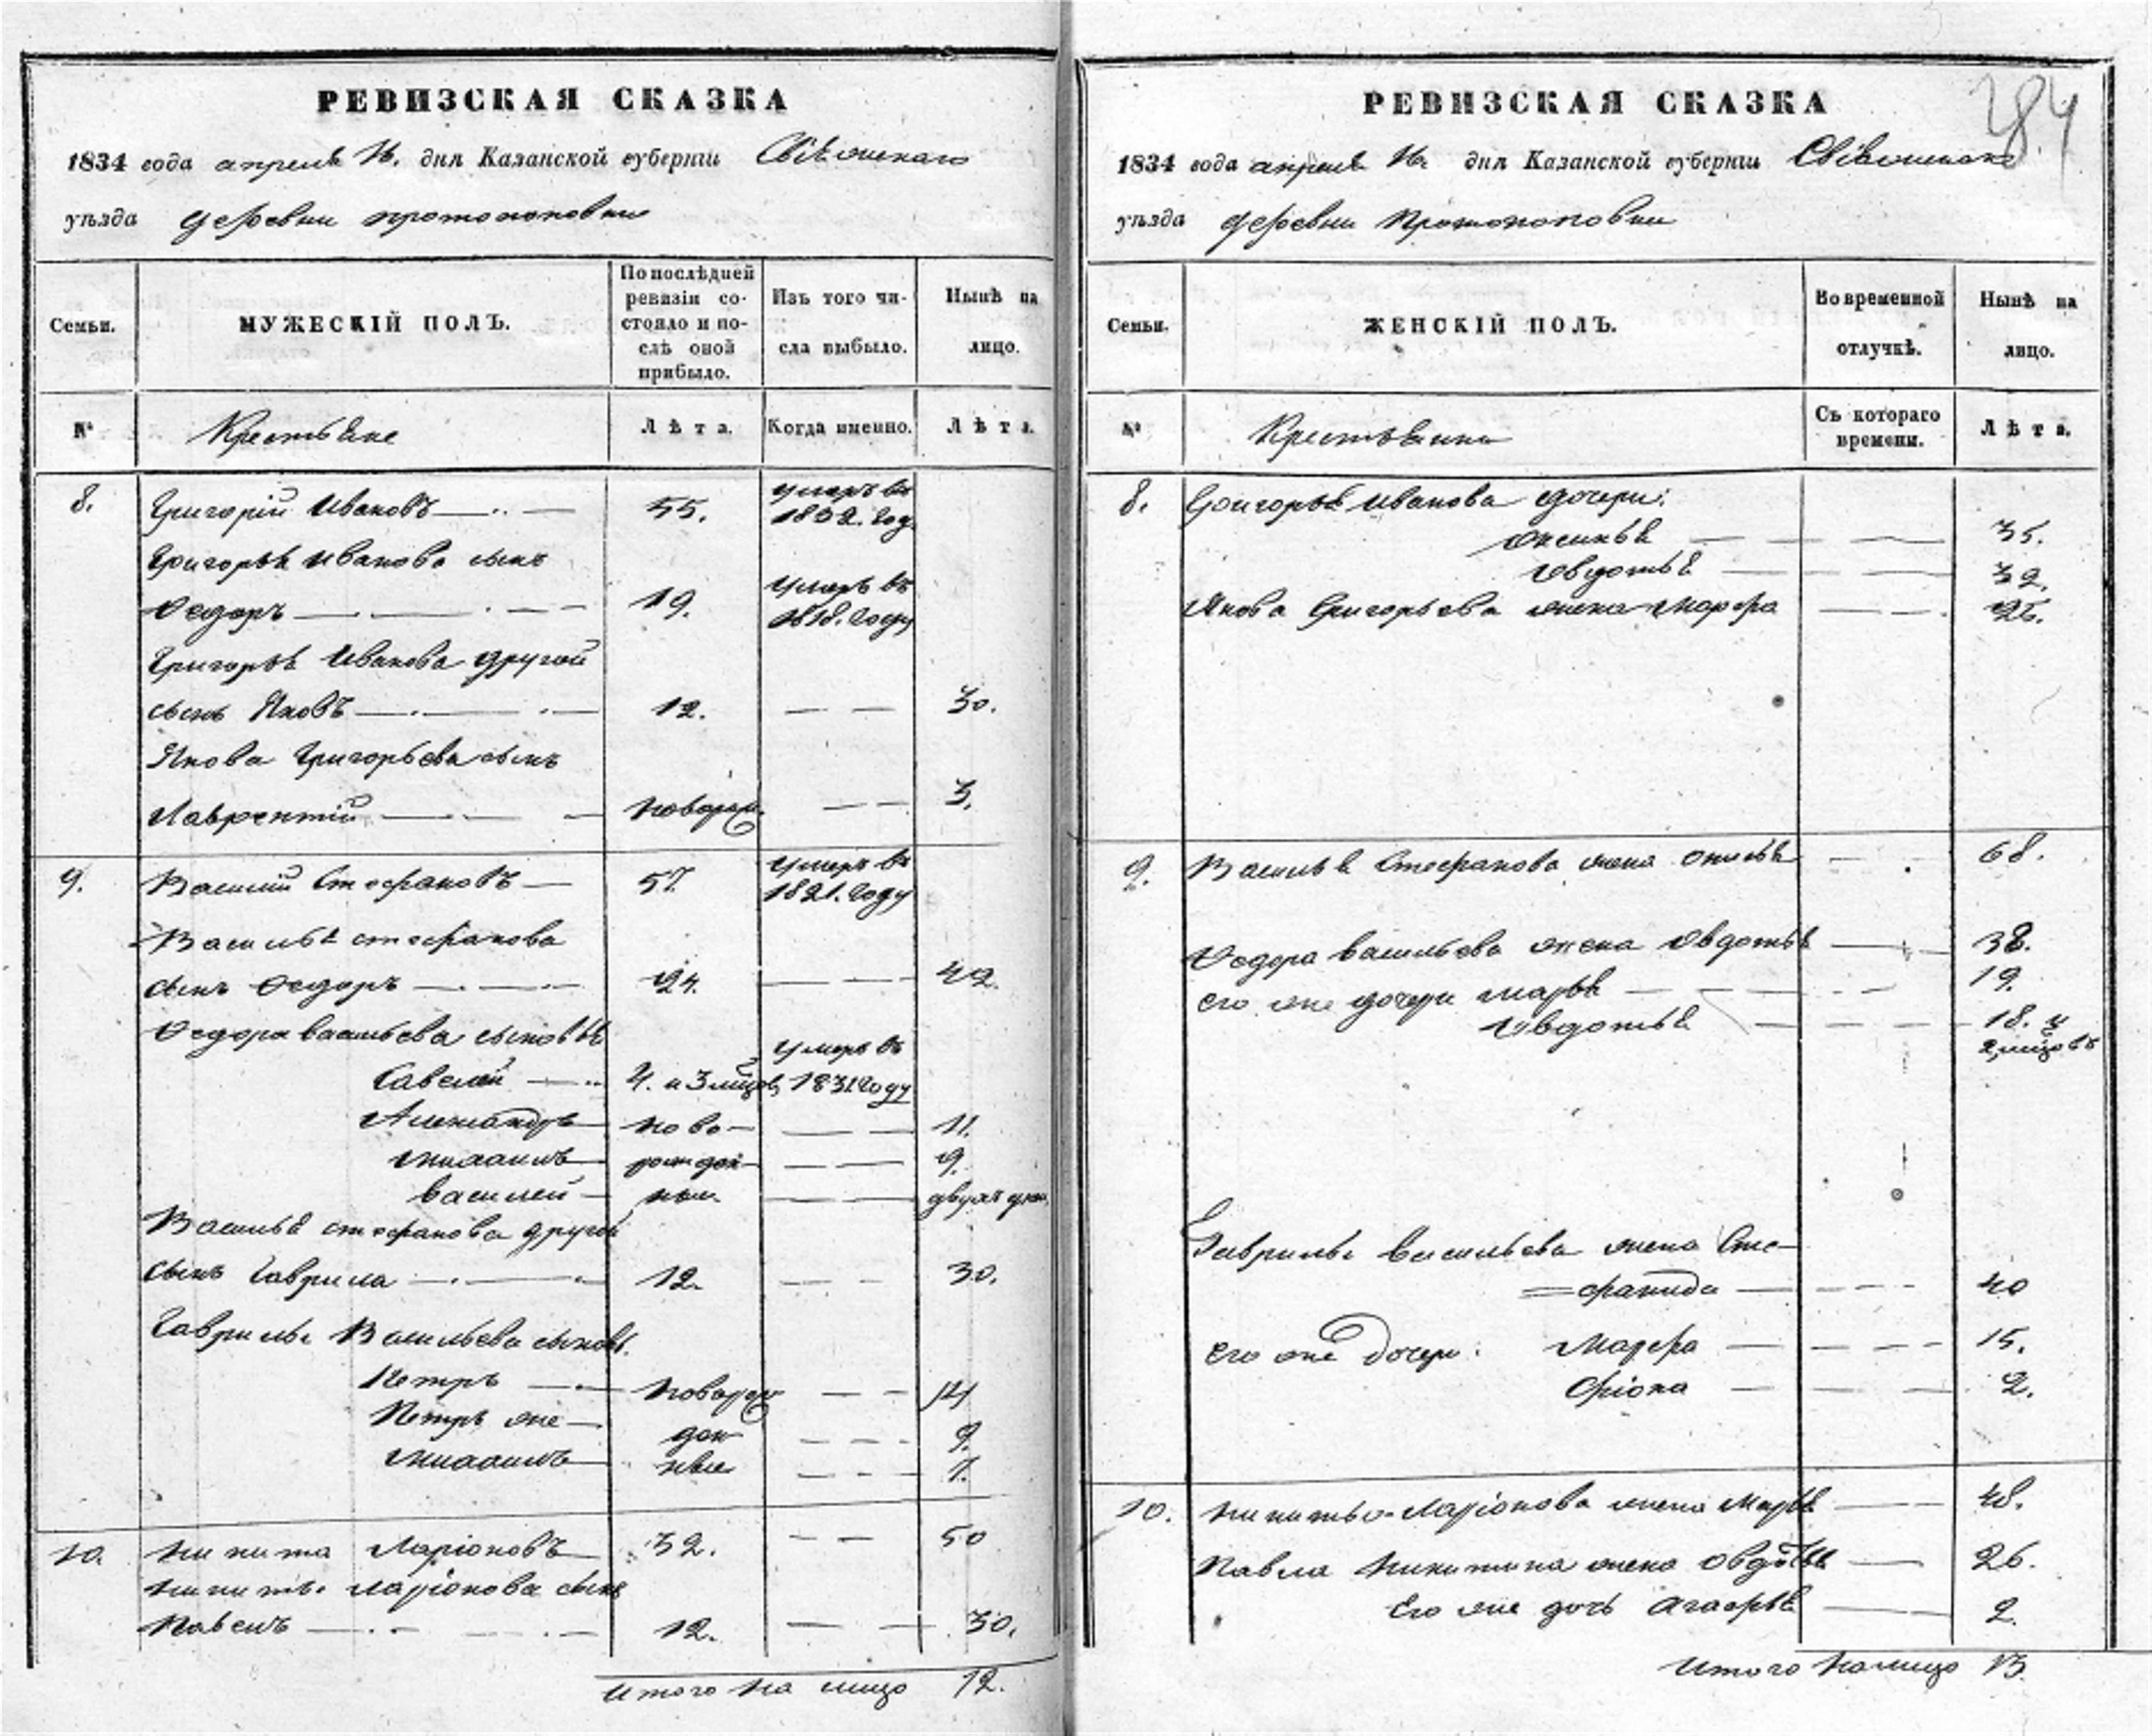 РЕВИЗСКАЯ СКАЗКА
1834 года апреля 16. дня Казанской губернии Свіяжскаго
уѣзда деревни протопоповки
Семьи.
МУЖЕСКІЙ ПОЛЪ.
По послѣдней
ревизіи со-
стояло и по-
слѣ оной
прибыло.
Изъ того чи-
сла выбыло.
Нынѣ на
лицо.
№
Крестьяне
Лѣта.
Когда именно.
Лѣта.
8. Григорій Ивановъ 55. умеръ въ
1832. год
Григорья Иванова сынъ
Ѳедоръ 19. Умеръ въ
1818. году
Григорья Иванова другой
сынъ Яковъ 12. 30.
Якова Григорьева сынъ
Лаврентій новорож. 3.
9. Василій Стефановъ 57. Умеръ въ
1821. году
Василья стефанова
сынъ Ѳедоръ 24. 42.
Ѳедора васильева сыновья
Савелей 4. и 3 мѣсецов. Умеръ въ
1831 году
Александръ ново- 11.
михаилъ рожден- 9.
василей ныи двухъ дней
Василья стефанова другой
сынъ Гаврила 12. 30.
Гаврилы Васильева сыновья.
Петръ новорож 14
Петръ же ден 9.
михаилъ ные 7.
10. никита Ларіоновъ 32. 50
никиты ларіонова сынъ
Павелъ 12. 30.
итого на лицо 12.
РЕВИЗСКАЯ СКАЗКА
84
1834 года апреля 16. дня Казанской губерніи Свіяжскаго
уѣзда деревни Протопоповки
Семьи.
ЖЕНСКІЙ ПОЛЪ.
Во временной
отлучкѣ.
Нынѣ на
лицо.
№
Крестьянки
Съ котораго
времени.
Лѣта.
8. Григорья Иванова дочери:
Оксинья 35.
Овдотья 32.
Якова Григорьева жена марфа 26.
9. Василья Стефанова жена 68.
Ѳедора васильева жена Овдотья 38.
его же дочери марья 19.
Овдотья 18. и
2 мѣсецовъ
Гаврилы васильева жена Сте-
фанида 40
его же дочери: Марфа 15.
Фіона 2.
10. никиты Ларіонова жена Марья 48.
Павла Никитина жена Овдотья 26.
Его же дочь Агафья 2.
Итого налицо 13.